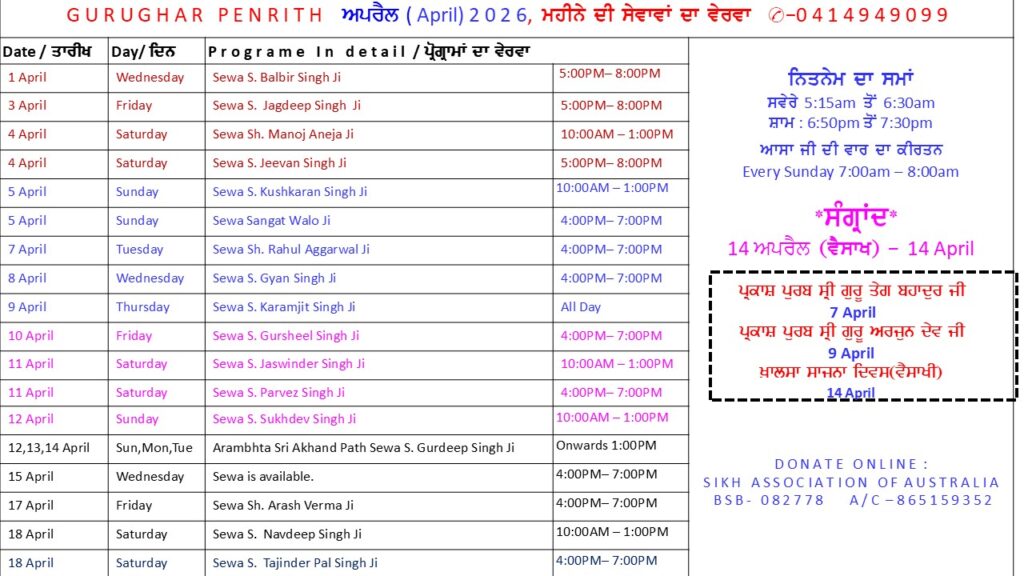 GURUGHAR PENRITH ਅਪਰੈਲ ( April) 2026, ਮਹੀਨੇ ਦੀ ਸੇਵਾਵਾਂ ਦਾ ਵੇਰਵਾ ✆–0414949099
Date / ਤਾਰੀਖ Day/ ਦਿਨ Programe In detail / ਪ੍ਰੋਗ੍ਰਾਮਾਂ ਦਾ ਵੇਰਵਾ
1 April Wednesday Sewa S. Balbir Singh Ji 5:00PM– 8:00PM
3 April Friday Sewa S. Jagdeep Singh Ji 5:00PM– 8:00PM
4 April Saturday Sewa Sh. Manoj Aneja Ji 10:00AM – 1:00PM
4 April Saturday Sewa S. Jeevan Singh Ji 5:00PM– 8:00PM
5 April Sunday Sewa S. Kushkaran Singh Ji 10:00AM – 1:00PM
5 April Sunday Sewa Sangat Walo Ji 4:00PM– 7:00PM
7 April Tuesday Sewa Sh. Rahul Aggarwal Ji 4:00PM– 7:00PM
8 April Wednesday Sewa S. Gyan Singh Ji 4:00PM– 7:00PM
9 April Thursday Sewa S. Karamjit Singh Ji All Day
10 April Friday Sewa S. Gursheel Singh Ji 4:00PM– 7:00PM
11 April Saturday Sewa S. Jaswinder Singh Ji 10:00AM – 1:00PM
11 April Saturday Sewa S. Parvez Singh Ji 4:00PM– 7:00PM
12 April Sunday Sewa S. Sukhdev Singh Ji 10:00AM – 1:00PM
12,13,14 April Sun,Mon,Tue Arambhta Sri Akhand Path Sewa S. Gurdeep Singh Ji Onwards 1:00PM
15 April Wednesday Sewa is available. 4:00PM– 7:00PM
17 April Friday Sewa Sh. Arash Verma Ji 4:00PM– 7:00PM
18 April Saturday Sewa S. Navdeep Singh Ji 10:00AM – 1:00PM
18 April Saturday Sewa S. Tajinder Pal Singh Ji 4:00PM– 7:00PM
ਨਿਤਨੇਮ ਦਾ ਸਮਾਂ
ਸਵੇਰੇ 5:15am ਤੋਂ 6:30am
ਸ਼ਾਮ : 6:50pm ਤੋਂ 7:30pm
ਆਸਾ ਜੀ ਦੀ ਵਾਰ ਦਾ ਕੀਰਤਨ
Every Sunday 7:00am – 8:00am
*ਸੰਗ੍ਰਾਂਦ*
14 ਅਪਰੈਲ (ਵੈਸਾਖ) – 14 April
ਪ੍ਰਕਾਸ਼ ਪੁਰਬ ਸ੍ਰੀ ਗੁਰੂ ਤੇਗ ਬਹਾਦੁਰ ਜੀ
7 April
ਪ੍ਰਕਾਸ਼ ਪੁਰਬ ਸ੍ਰੀ ਗੁਰੂ ਅਰਜੁਨ ਦੇਵ ਜੀ
9 April
ਖ਼ਾਲਸਾ ਸਾਜਨਾ ਦਿਵਸ(ਵੈਸਾਖੀ)
14 April
DONATE ONLINE :
SIKH ASSOCIATION OF AUSTRALIA
BSB- 082778 A/C –865159352